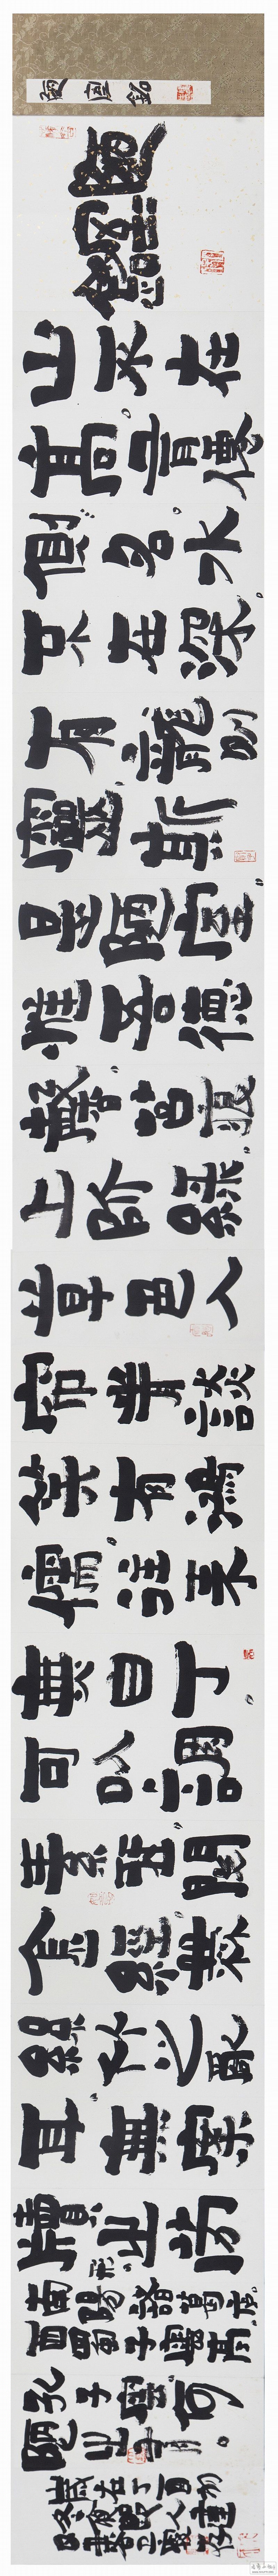 陋室銘
陋室銘
山不在
高有僊
則名水
不在深
有龍則
靈斯
是陋室
惟吾德
馨苔痕
上階綠
草色入
簾青談
笑有鴻
儒往來
無白丁
可以調
素琴閱
金經無
絲竹之亂
耳無案
牘之勞
形
南陽諸葛廬
西蜀子雲亭
孔子云何
陋之有